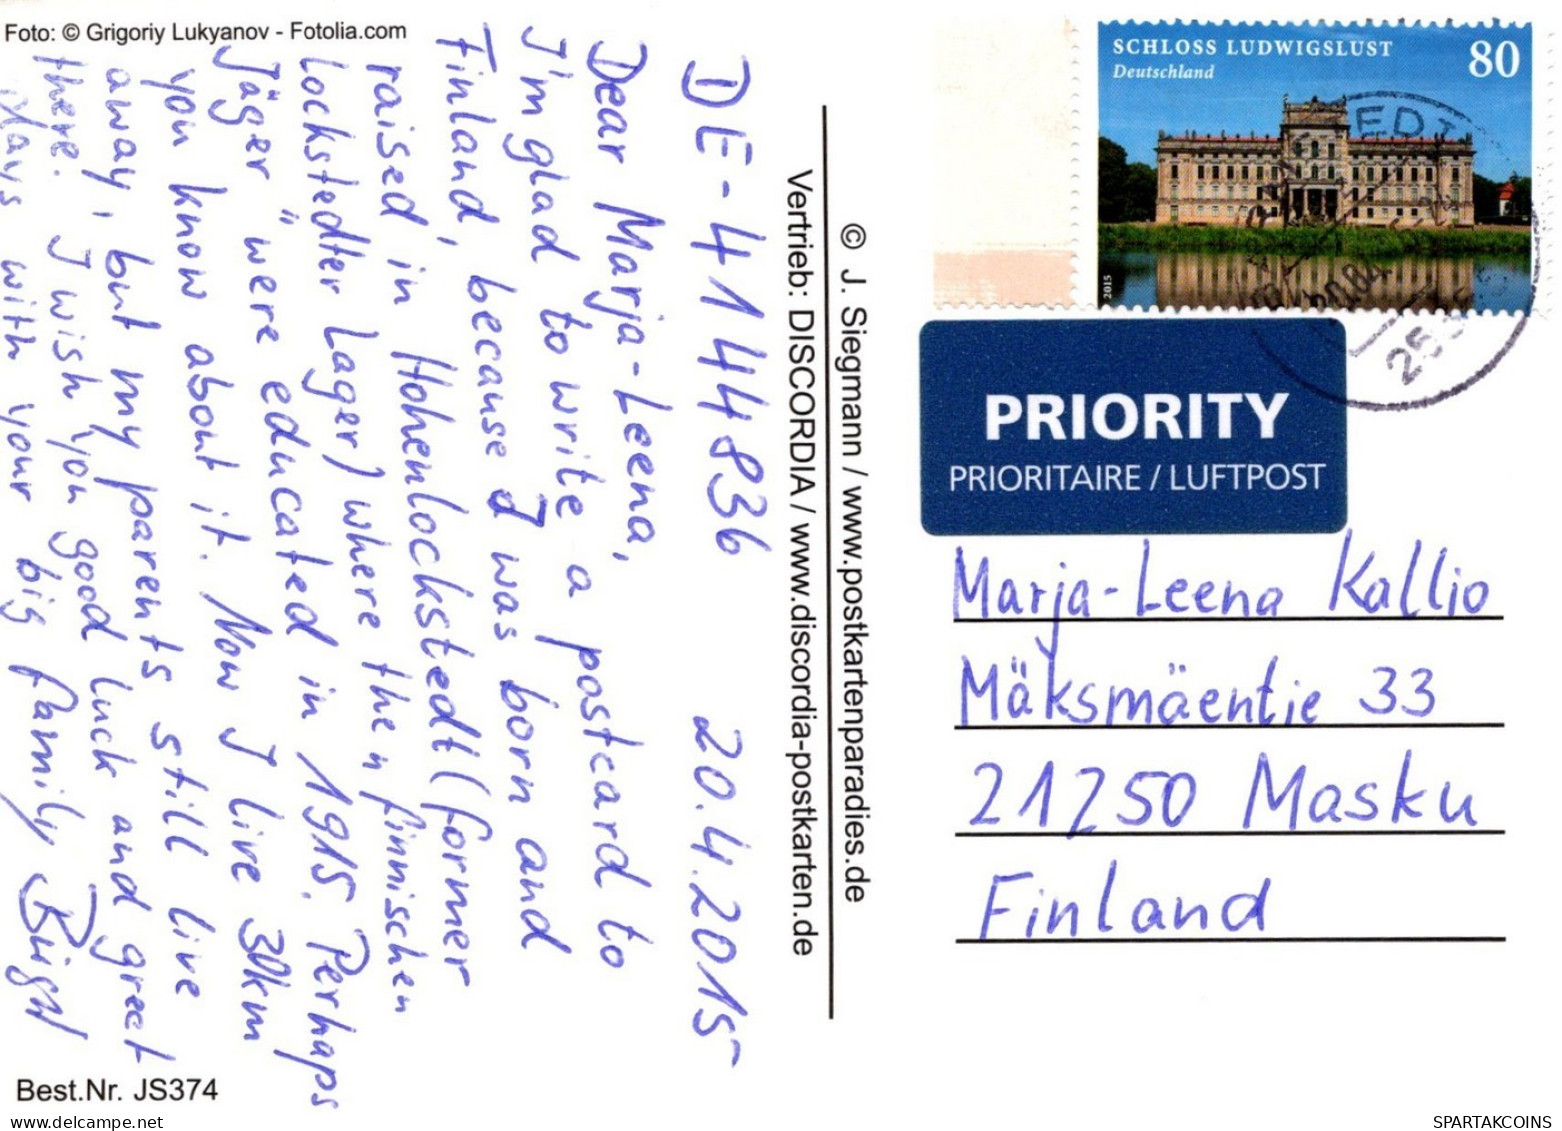 Foto: © Grigoriy Lukyanov - Fotolia.com
DE-4144836 20.4.2015
Dear Marja-Leena,
I'm glad to write a postcard to
Finland, because I was born and
raised in Hohenlockstedt (former
Lockstedter Lager) where the "finnischen
Jäger" were educated in 1915. Perhaps
you know about it. Now I live 30km
away, but my parents still live
there. I wish you good luck and great
days with your big family
Best.Nr. JS374
© J. Siegmann / www.postkartenparadies.de
Vertrieb: DISCORDIA / www.discordia-postkarten.de
SCHLOSS LUDWIGSLUST 80
Deutschland
2015
PRIORITY
PRIORITAIRE / LUFTPOST
Marja-Leena Kallio
Mäksmäentie 33
21250 Masku
Finland
SPARTAKCOINS